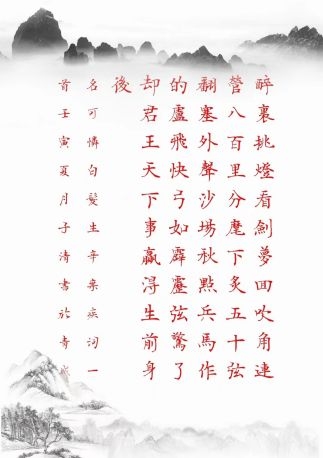 醉裏挑燈看劍夢回吹角連
營八百里分麾下炙五十弦
翻塞外聲沙場秋點兵馬作
的盧飛快弓如霹靂弦驚了
却君王天下事贏淂生前身
後
名可憐白髮生辛棄疾詞一
首壬寅夏月子清書於